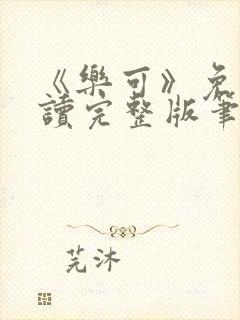 《樂可》免
讀完整版筆
芫沐